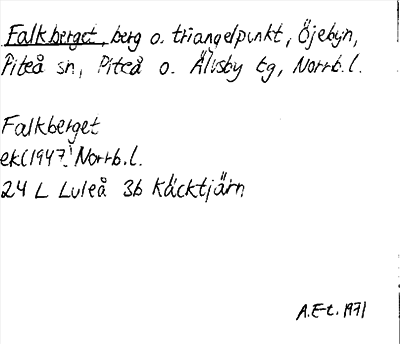 Falkberget, berg o. triangelpunkt, Öjebyn,
Piteå sn, Piteå o. Älvsby tg, Norrb.l.
Falkberget
ek(1947) Norrb.l.
24 L Luleå 3b Käcktjärn
A.E-t. 1971